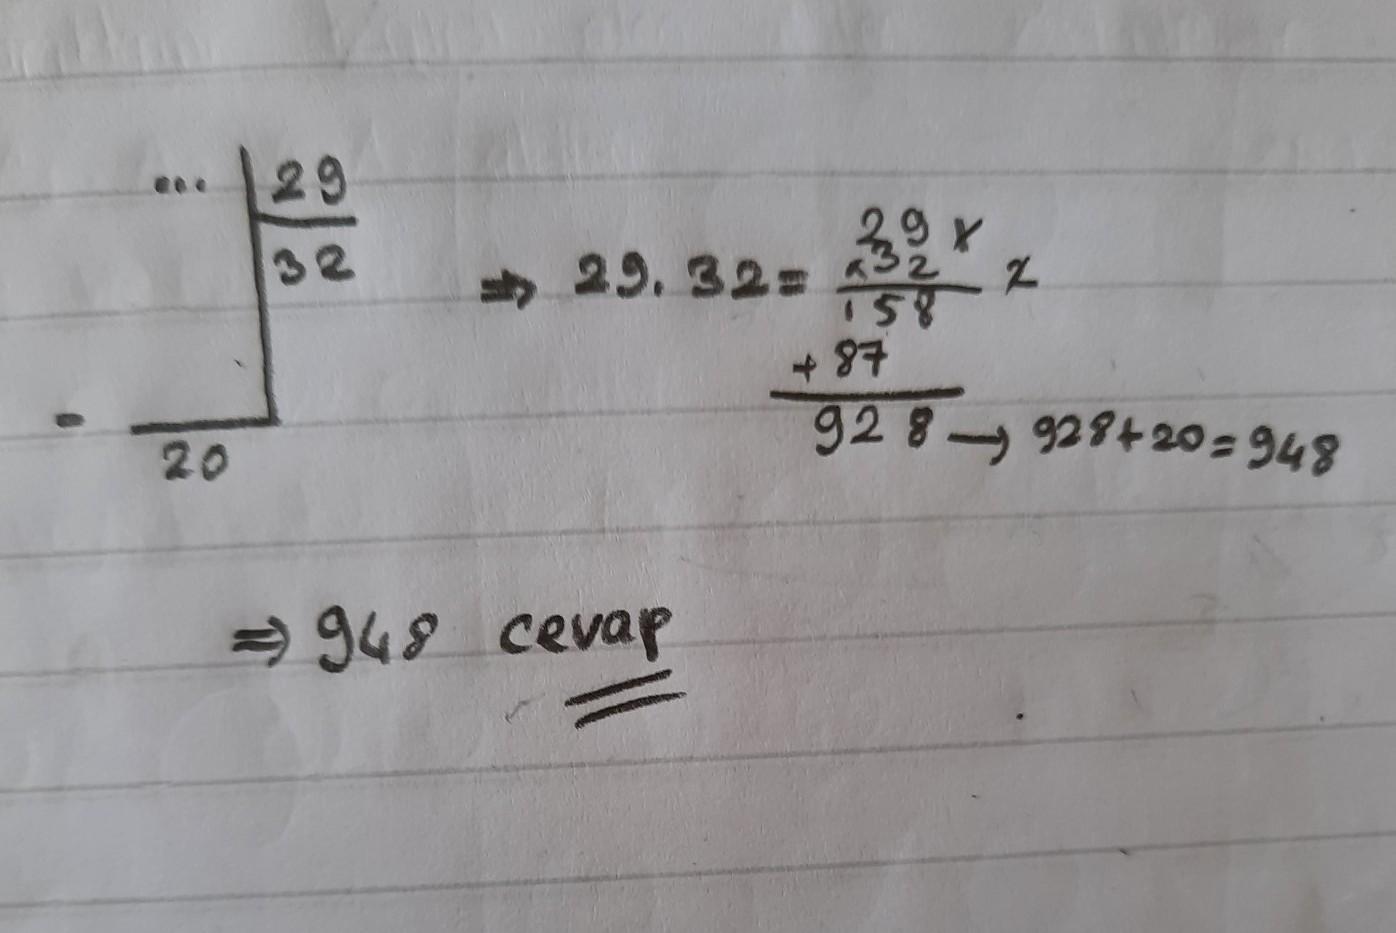 ... 29
32
20
⇒ 29. 32 =
29 x
x32 x
158
+ 87
928 → 928+20=948
⇒ 948 cevap